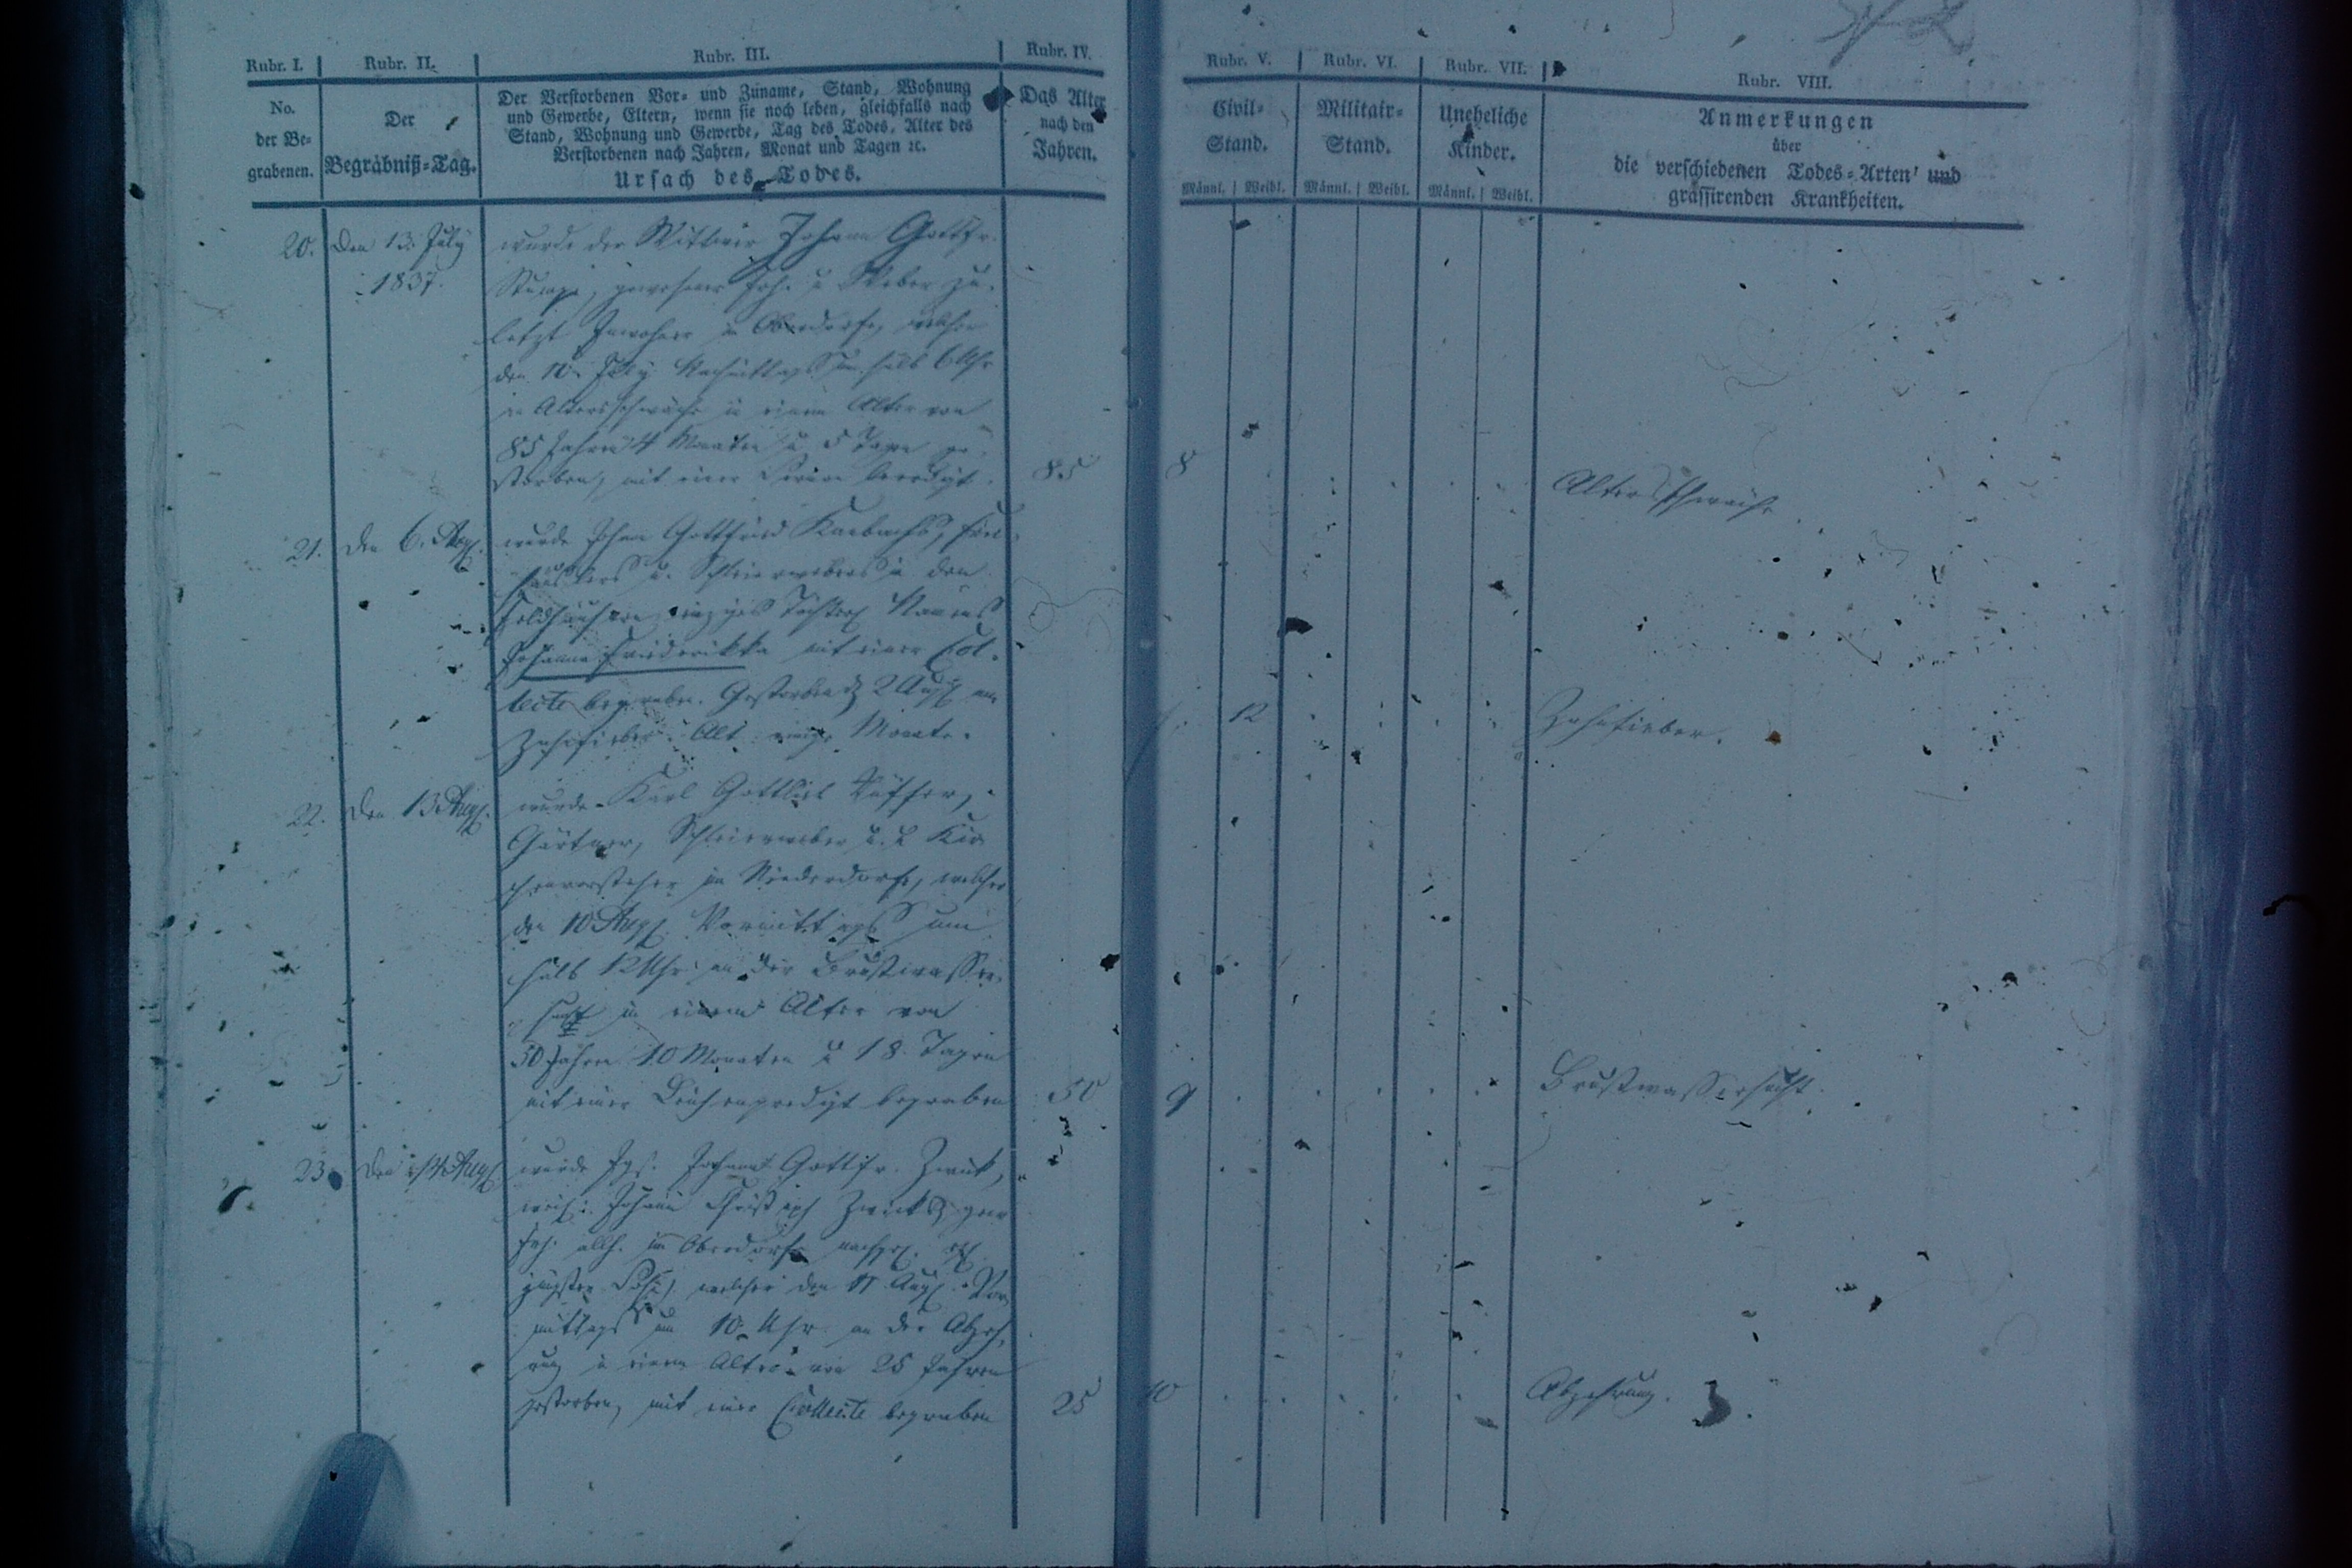 Rubr. I. Rubr. II. Rubr. III. Rubr. IV. Rubr. V. Rubr. VI. Rubr. VII. Rubr. VIII.
No.
der Be-
grabenen.
Der
Begräbniß-Tag.
Der Verstorbenen Vor- und Zuname, Stand, Wohnung
und Gewerbe, Eltern, wenn sie noch leben, gleichfalls nach
Stand, Wohnung und Gewerbe, Tag des Todes, Alter des
Verstorbenen nach Jahren, Monat und Tagen ꝛc.
Ursach des Todes.
Das Alter
nach den
Jahren.
Civil-
Stand.
Männl. Weibl.
Militair-
Stand.
Männl. Weibl.
Uneheliche
Kinder.
Männl. Weibl.
Anmerkungen
über
die verschiedenen Todes-Arten und
grassirenden Krankheiten.
20. Den 13. July wurde der Wittwer Johann Gottfr.
1837. gewesener u Weber zu-
letzt Inwohner in Oberdorfe, welcher
den 10. July Nachmittags um halb 6 Uhr
an Altersschwäche in einem Alter von
85 Jahren 4 Monaten u. 5 Tagen ge-
storben, mit einer beerdigt. 85 8 Altersschwäche
21. Den 6. Aug. wurde Johann Gottfried
u. Schleierwebers in den
Feldhäusern einziges Töchterch Namens
Johanna Friederikka mit einer Col-
lecte begraben. Gestorben d. 2 Aug. am
Zahnfieber. Alt einige Monate. 12 Zahnfieber.
22. Den 13 Aug. wurde Karl Gottlieb
Gärtner, Schleierweber u. Kir
chenvorsteher im Niederdorfe, welcher
den 10 Aug. Vormittags um
halb 12 Uhr an der Brustwasser-
sucht in einem Alter von
50 Jahren 10 Monaten u 18. Tagen
mit einer Leichenpredigt begraben 50 9 Brustwassersucht
23. Den 14 Aug. wurde Jgs. Johann Gottfr.
weil. Johann gew
allh. im Oberdorfe
jüngster Sohn, welcher den 11 Aug. Vor
mittags um 10 Uhr an der Abzeh-
rung in einem Alter von 25 Jahren
gestorben, mit einer Collecte begraben 25 10 Abzehrung.